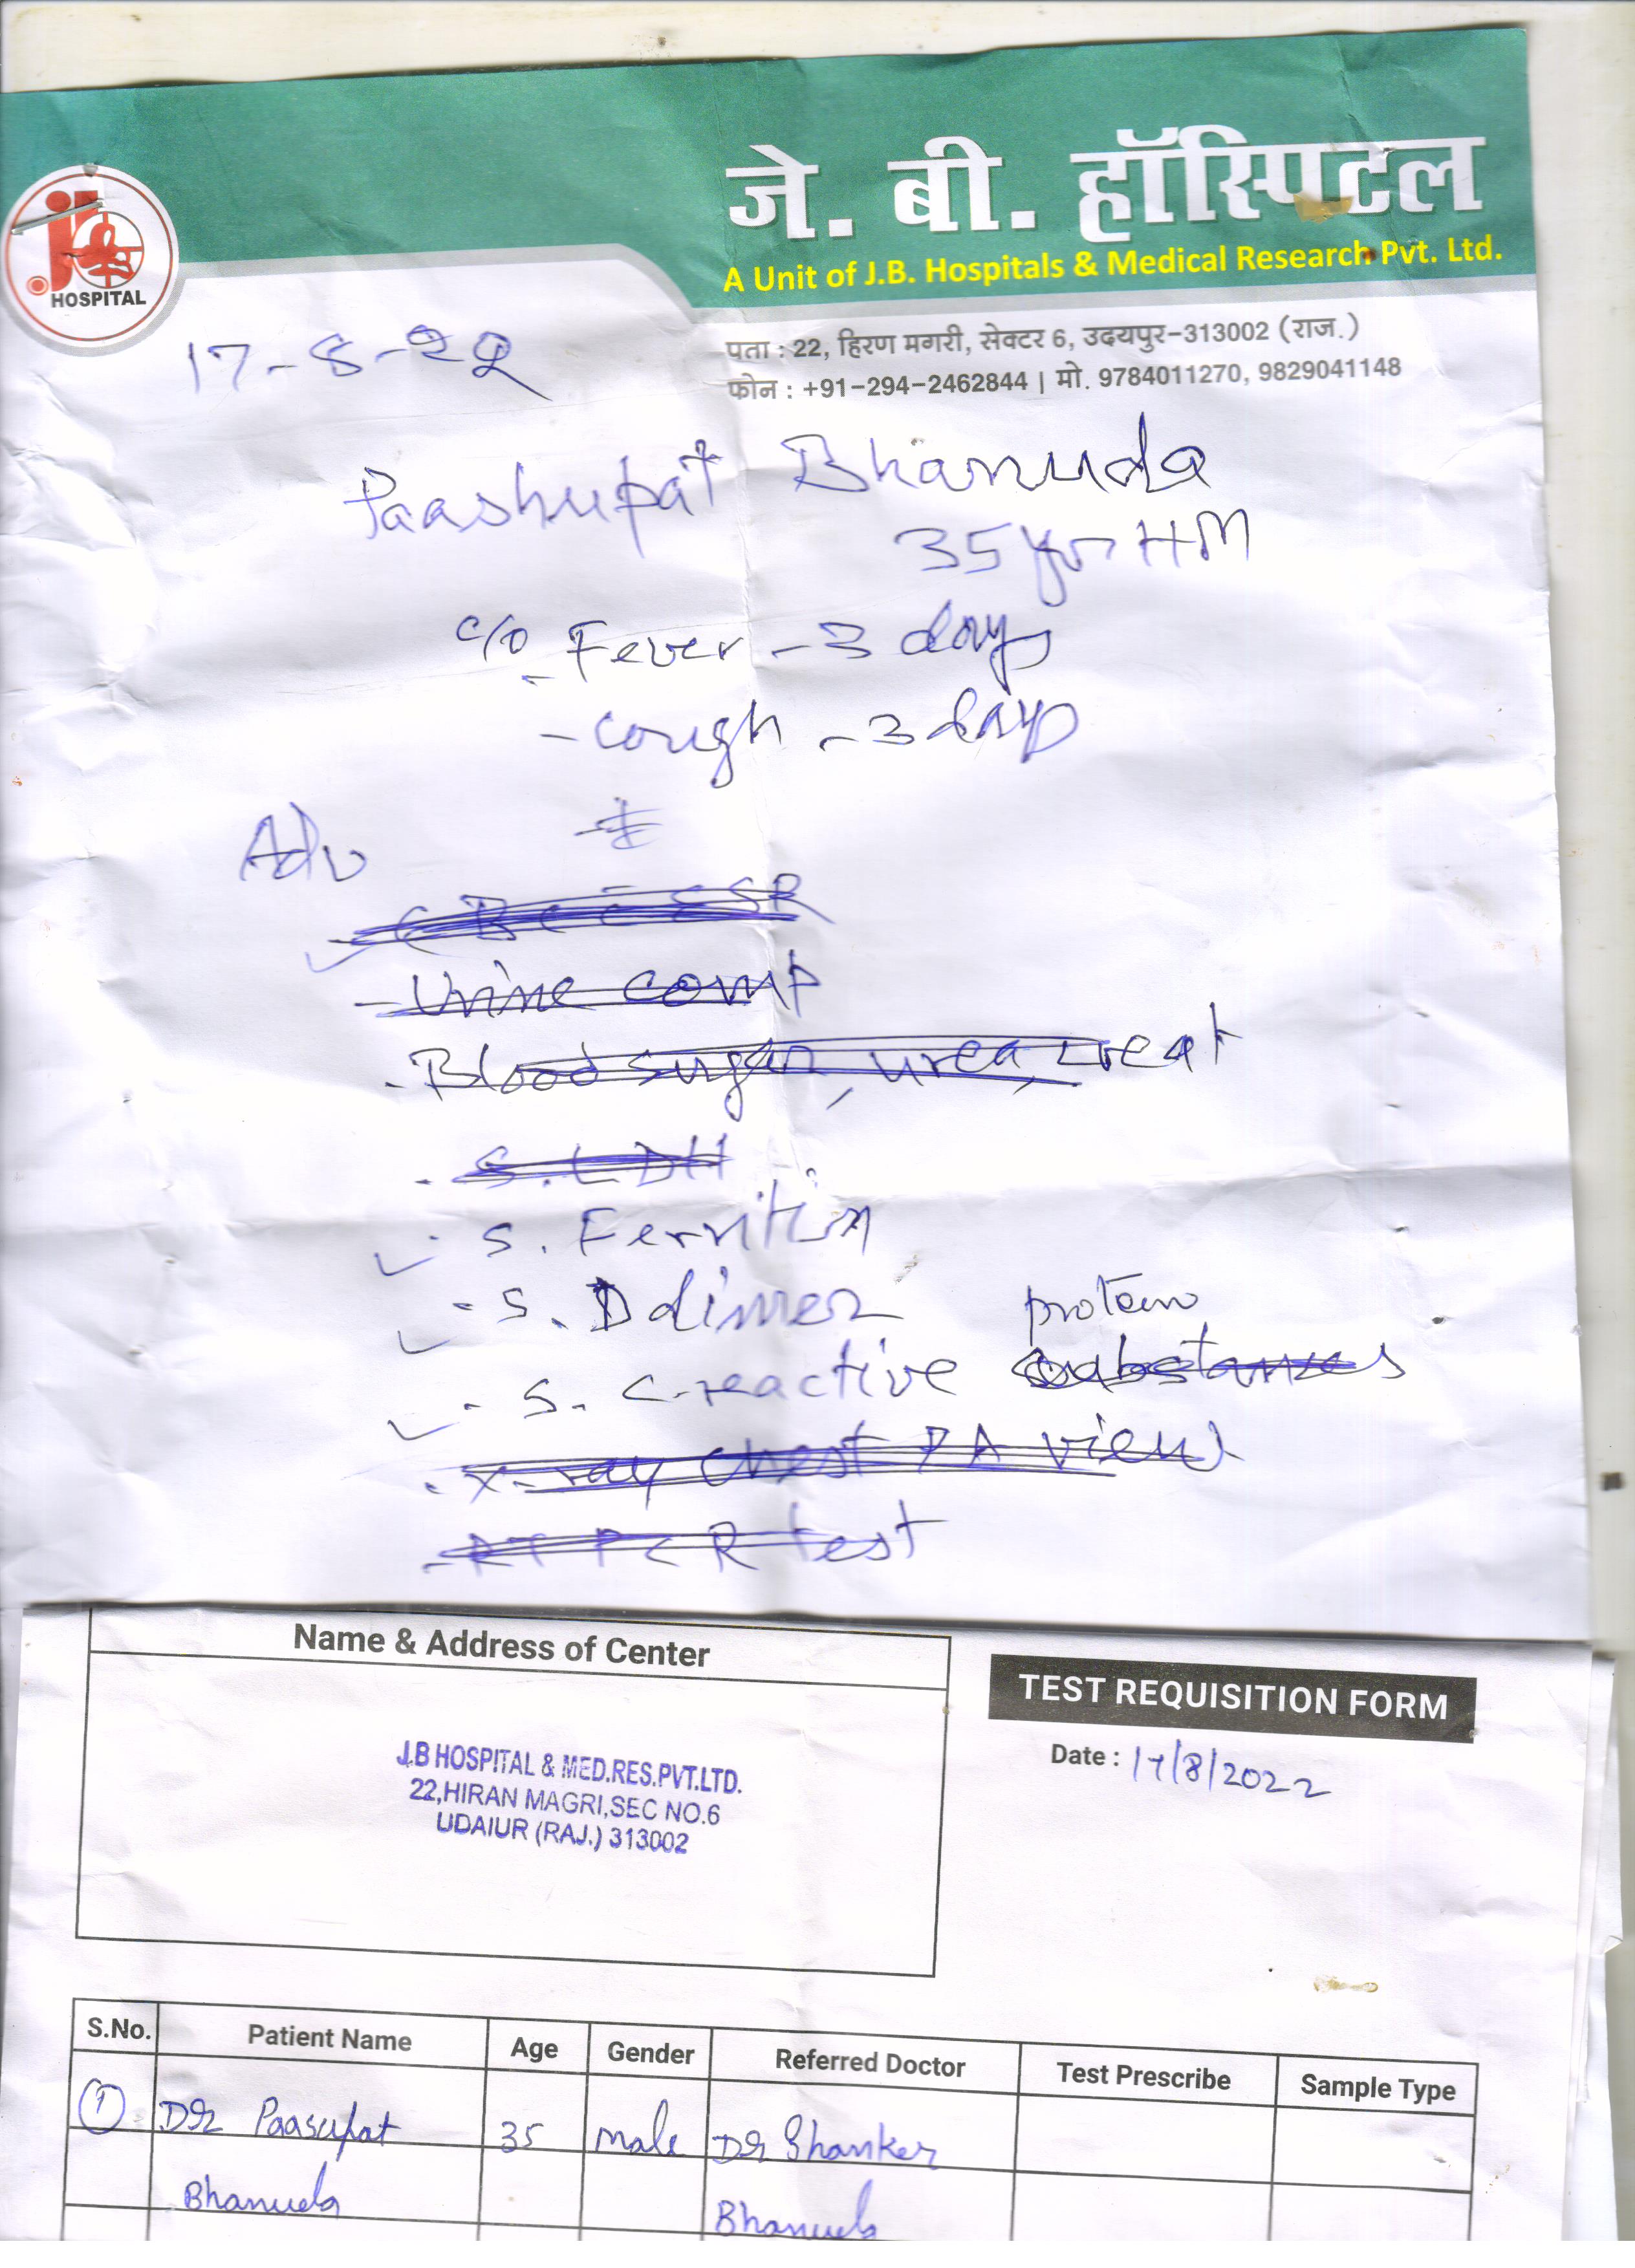 जे. बी. हॉस्पिटल
A Unit of J.B. Hospitals & Medical Research Pvt. Ltd.
HOSPITAL
पता : 22, हिरण मगरी, सेक्टर 6, उदयपुर-313002 (राज.)
फोन : +91-294-2462844 | मो. 9784011270, 9829041148
17-8-22
Paashupat Bhanuda
35 yr HM
c/o Fever - 3 days
- cough - 3 days
Adv
- CBC c̄ ESR
- Urine comp
- Blood sugar, urea, creat
- S. LDH
- S. Ferritin
- S. D dimer
protein
- S. C-reactive substances
- X-ray chest PA view
- RT PCR test
Name & Address of Center
TEST REQUISITION FORM
J.B HOSPITAL & MED.RES.PVT.LTD.
22,HIRAN MAGRI,SEC NO.6
UDAIUR (RAJ.) 313002
Date : 17/8/2022
S.No. Patient Name Age Gender Referred Doctor Test Prescribe Sample Type
1 Dr Paasupat 35 Male Dr Shanker
Bhanuda Bhanuda